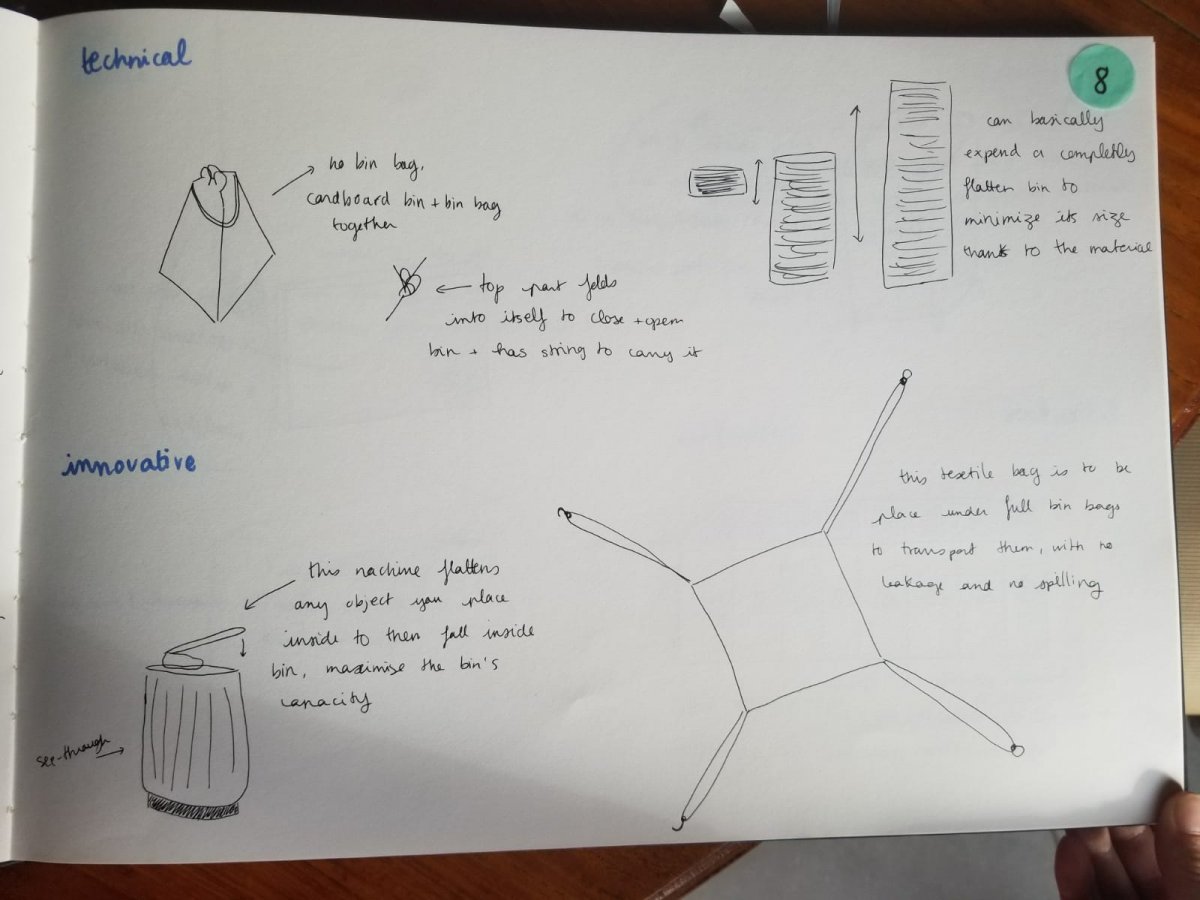 technical
8
no bin bag,
cardboard bin + bin bag
together
top part folds
into itself to close + open
bin + has string to carry it
can basically
expend a completly
flatten bin to
minimize its size
thank to the material
innovative
this machine flattens
any object you place
inside to then fall inside
bin, maximise the bin's
capacity
see-through
this textile bag is to be
place under full bin bags
to transport them, with no
leakage and no spilling